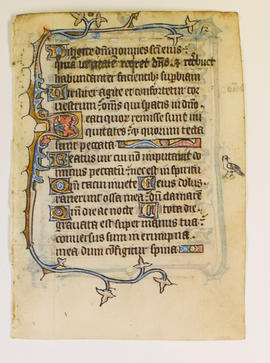 Diligite dnm omnes sci eius
quia ueritatem requiret dns & retribuet
habundanter facientib supbiam
Viriliter agite et confortetur cor
uestrum : oms qui spatis in dno
Beati quor remisse sunt ini
quitates : et quorum tecta
sunt peccata
Beatus uir cui nō imputauit do
minus peccatum : nec est in spiritu
Qm tacui inuete eius dolus
rauerunt ossa mea : dum clamarē
Qm die ac nocte tota die
grauata est super me manus tua
conuersus sum in erumpna
mea dum configitur spina